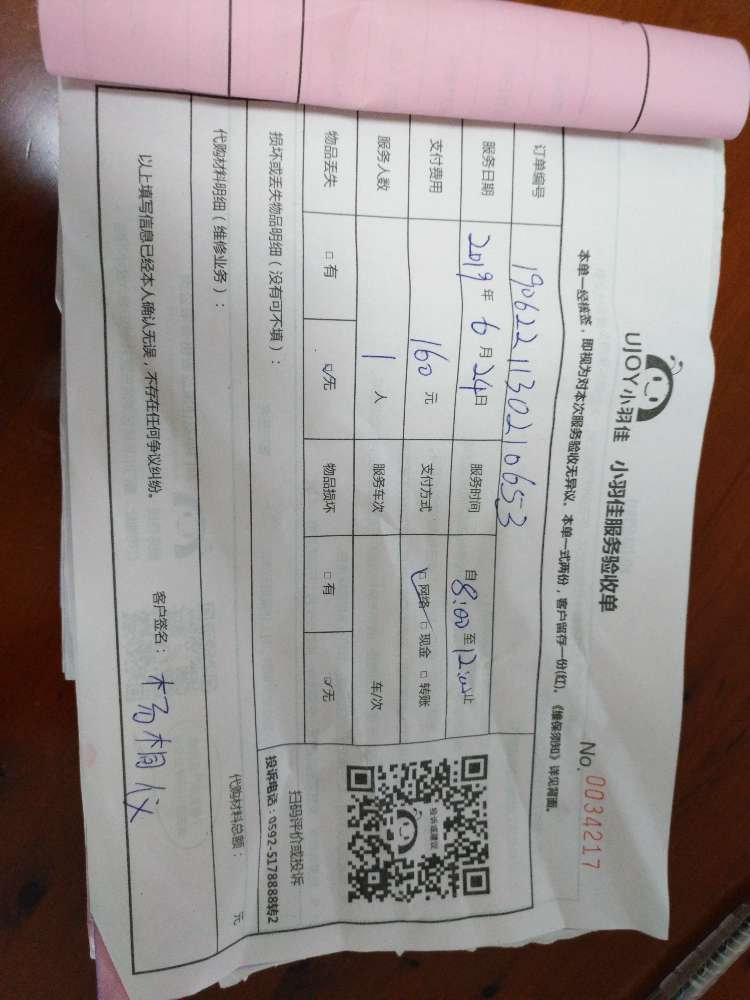 UJOY小羽佳 小羽佳服务验收单
No. 0034217
本单一经核签，即视为对本次服务验收无异议。本单一式两份，客户留存一份(红)。《维保须知》详见背面。
订单编号 190622113021 0653
服务日期 2019 年 6 月 24 日 服务时间 自 8:00 至 12:00 止
支付费用 160 元 支付方式 ☑ 网络 □ 现金 □ 转账
服务人数 1 人 服务车次 车/次
物品丢失 □ 有 ☑ 无 物品损坏 □ 有 ☑ 无
损坏或丢失物品明细（没有可不填）：
投诉或建议
扫码评价或投诉
投诉电话：0592-5178888转2
代购材料明细（维修业务）：
代购材料总额： 元
以上填写信息已经本人确认无误，不存在任何争议纠纷。 客户签名：